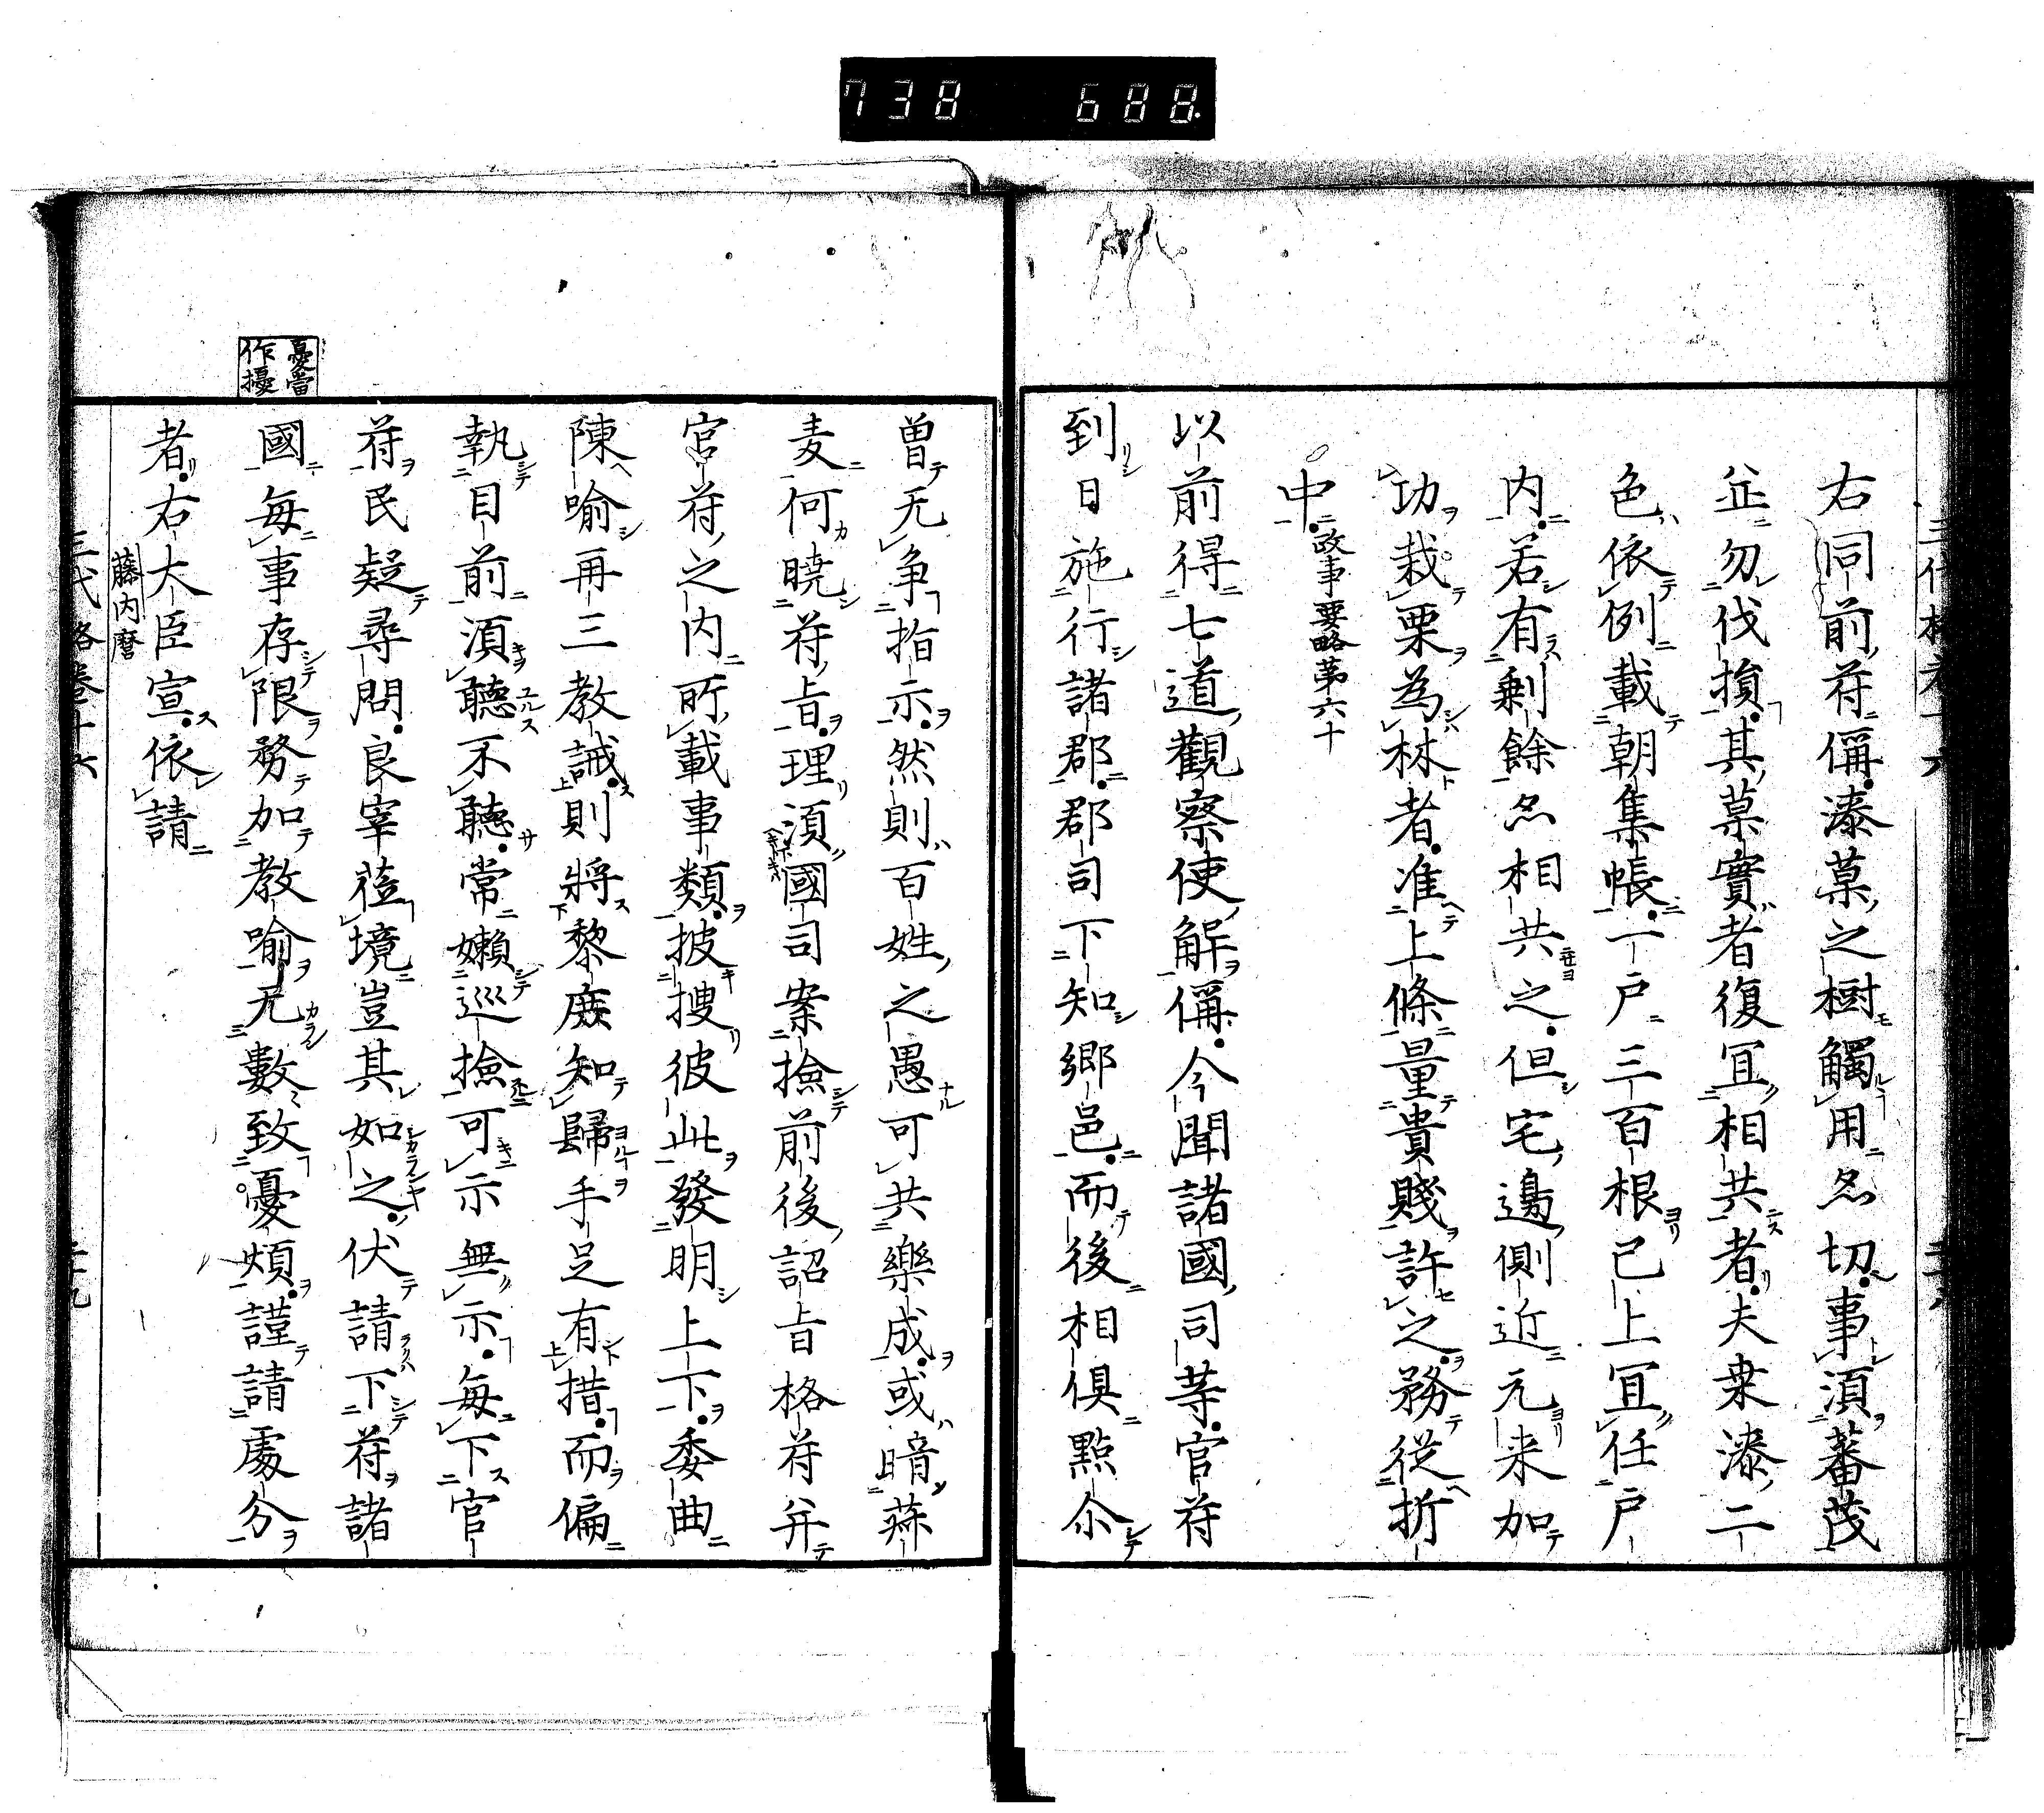 738 688
右同前符偁漆菓之樹觸用尤切事須蕃茂
並勿伐損其菓實者復宜相共者夫桒漆二
色依例載朝集帳一戸三百根已上宜任戸
内若有剰餘尤相共之但宅邊側近元来加
功栽栗為林者准上條量貴賤許之務從折
中政事要略第六十
以前得七道觀察使解偁今聞諸國司等官符
到日施行諸郡郡司下知郷邑而後相倶點尒
曽无争指示然則百姓之愚可共樂成或暗菽
麦何暁符旨理湏國司案撿前後詔旨格符并
官符之内所載事類披搜彼此發明上下委曲
陳喻再三教誡則將黎庶知歸手足有措而偏
執目前湏聽不聽常嬾巡撿可示無示每下官
符民疑尋問良宰莅境豈其如之伏請下符諸
國每事存限務加教喻无數致憂煩謹請處分
者右大臣宣依請
藤内麿
憂當
作擾
三代格卷十六